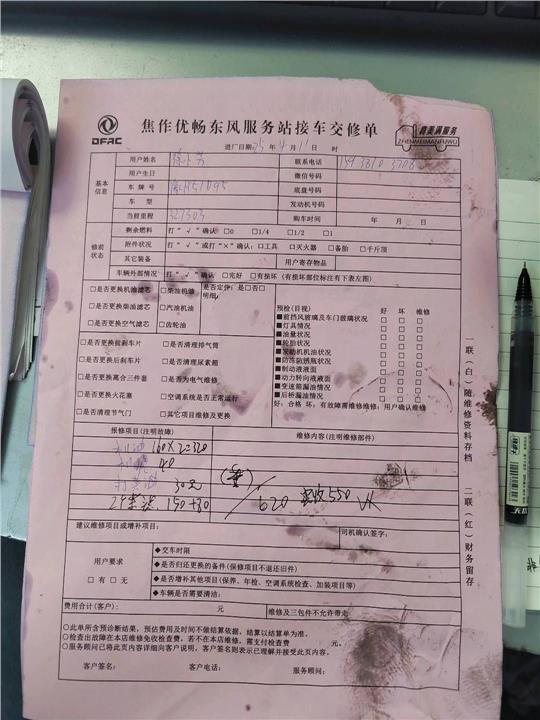 DFAC
焦作优畅东风服务站接车交修单
真美满服务
ZHENMEIMANFUWU
进厂日期 25 年 4 月 11 日 时
基本信息
用户姓名
联系电话
用户生日
微信号码
车牌号
底盘号码
车型
发动机号码
当前里程 327303
购车时间 年 月 日
修前状态
剩余燃料 打“√”确认 □0 □1/4 □1/2 □1
附件状况 打“√”或打“×”确认:□工具 □灭火器 □备胎 □千斤顶
其它装备
用户寄存物品
车辆外部情况 打“√”确认 □完好 □有损坏 (有损坏部位标注有下表左图)
□是否更换机油滤芯 □柴油机油
□是否更换柴油滤芯 □汽油机油
□是否更换空气滤芯 □齿轮油
明细:
□是否更换前刹车片 □是否清理排气筒
□是否更换后刹车片 □是否清理尿素箱
□是否更换离合三件套 □是否为电气维修
□是否更换火花塞 □空调系统是否正常运行
□是否清理节气门 □其它项目维修及更换
预检(目视) 好 坏 维修
■前挡风玻璃及车门玻璃状况 □ □ □
■灯具情况 □ □ □
■油量状况 □ □ □
■轮胎状况 □ □ □
■发动机机油状况 □ □ □
■防冻液
■制动液液面 □ □ □
■动力转向液液面 □ □ □
■变速箱漏油情况 □ □ □
■后桥漏油情况 □ □ □
好:合格 坏:有故障需维修维修:用户确认维修
报修项目(注明故障)
维修内容(注明维修部件)
机油 160×2=320
40
30元
150+80
620 实收550
建议维修项目或增补项目:
司机确认签字:
用户要求
□有 □无
◆交车时限
◆是否归还更换的备件(保修项目不退还旧件)
◆是否增补其他项目(保养、年检、空调系统检查、加装项目等)
◆车辆是否需要清洁:
费用合计(客户): 元
维修及三包件不允许带走
○此单所含预诊断结果,预估费用及时间不做结算依据,结算以结算单为准。
○检查出故障在本店维修免收检查费,若不在本店维修,需支付检查费 元。
○服务顾问已将此页内容详细向客户说明,客户签名则表示已理解并接受此页内容。
客户签名: 客户电话: 服务顾问:
一联(白)随维修资料存档
二联(红)财务留存